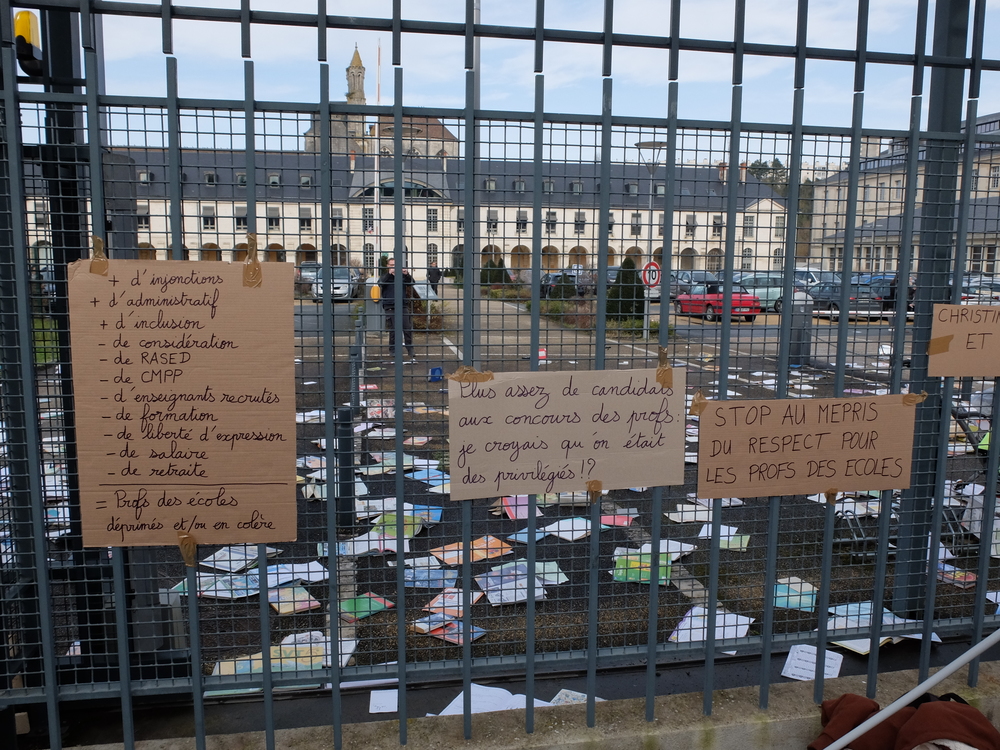 + d'injonctions
+ d'administratif
+ d'inclusion
- de considération
- de RASED
- de CMPP
- d'enseignants recrutés
- de formation
- de liberté d'expression
- de salaire
- de retraite
= Profs des écoles
déprimés et/ou en colère
Plus assez de candidats
aux concours des profs :
je croyais qu'on était
des privilégiés !?
STOP AU MEPRIS
DU RESPECT POUR
LES PROFS DES ECOLES
CHRISTIN
ET
10